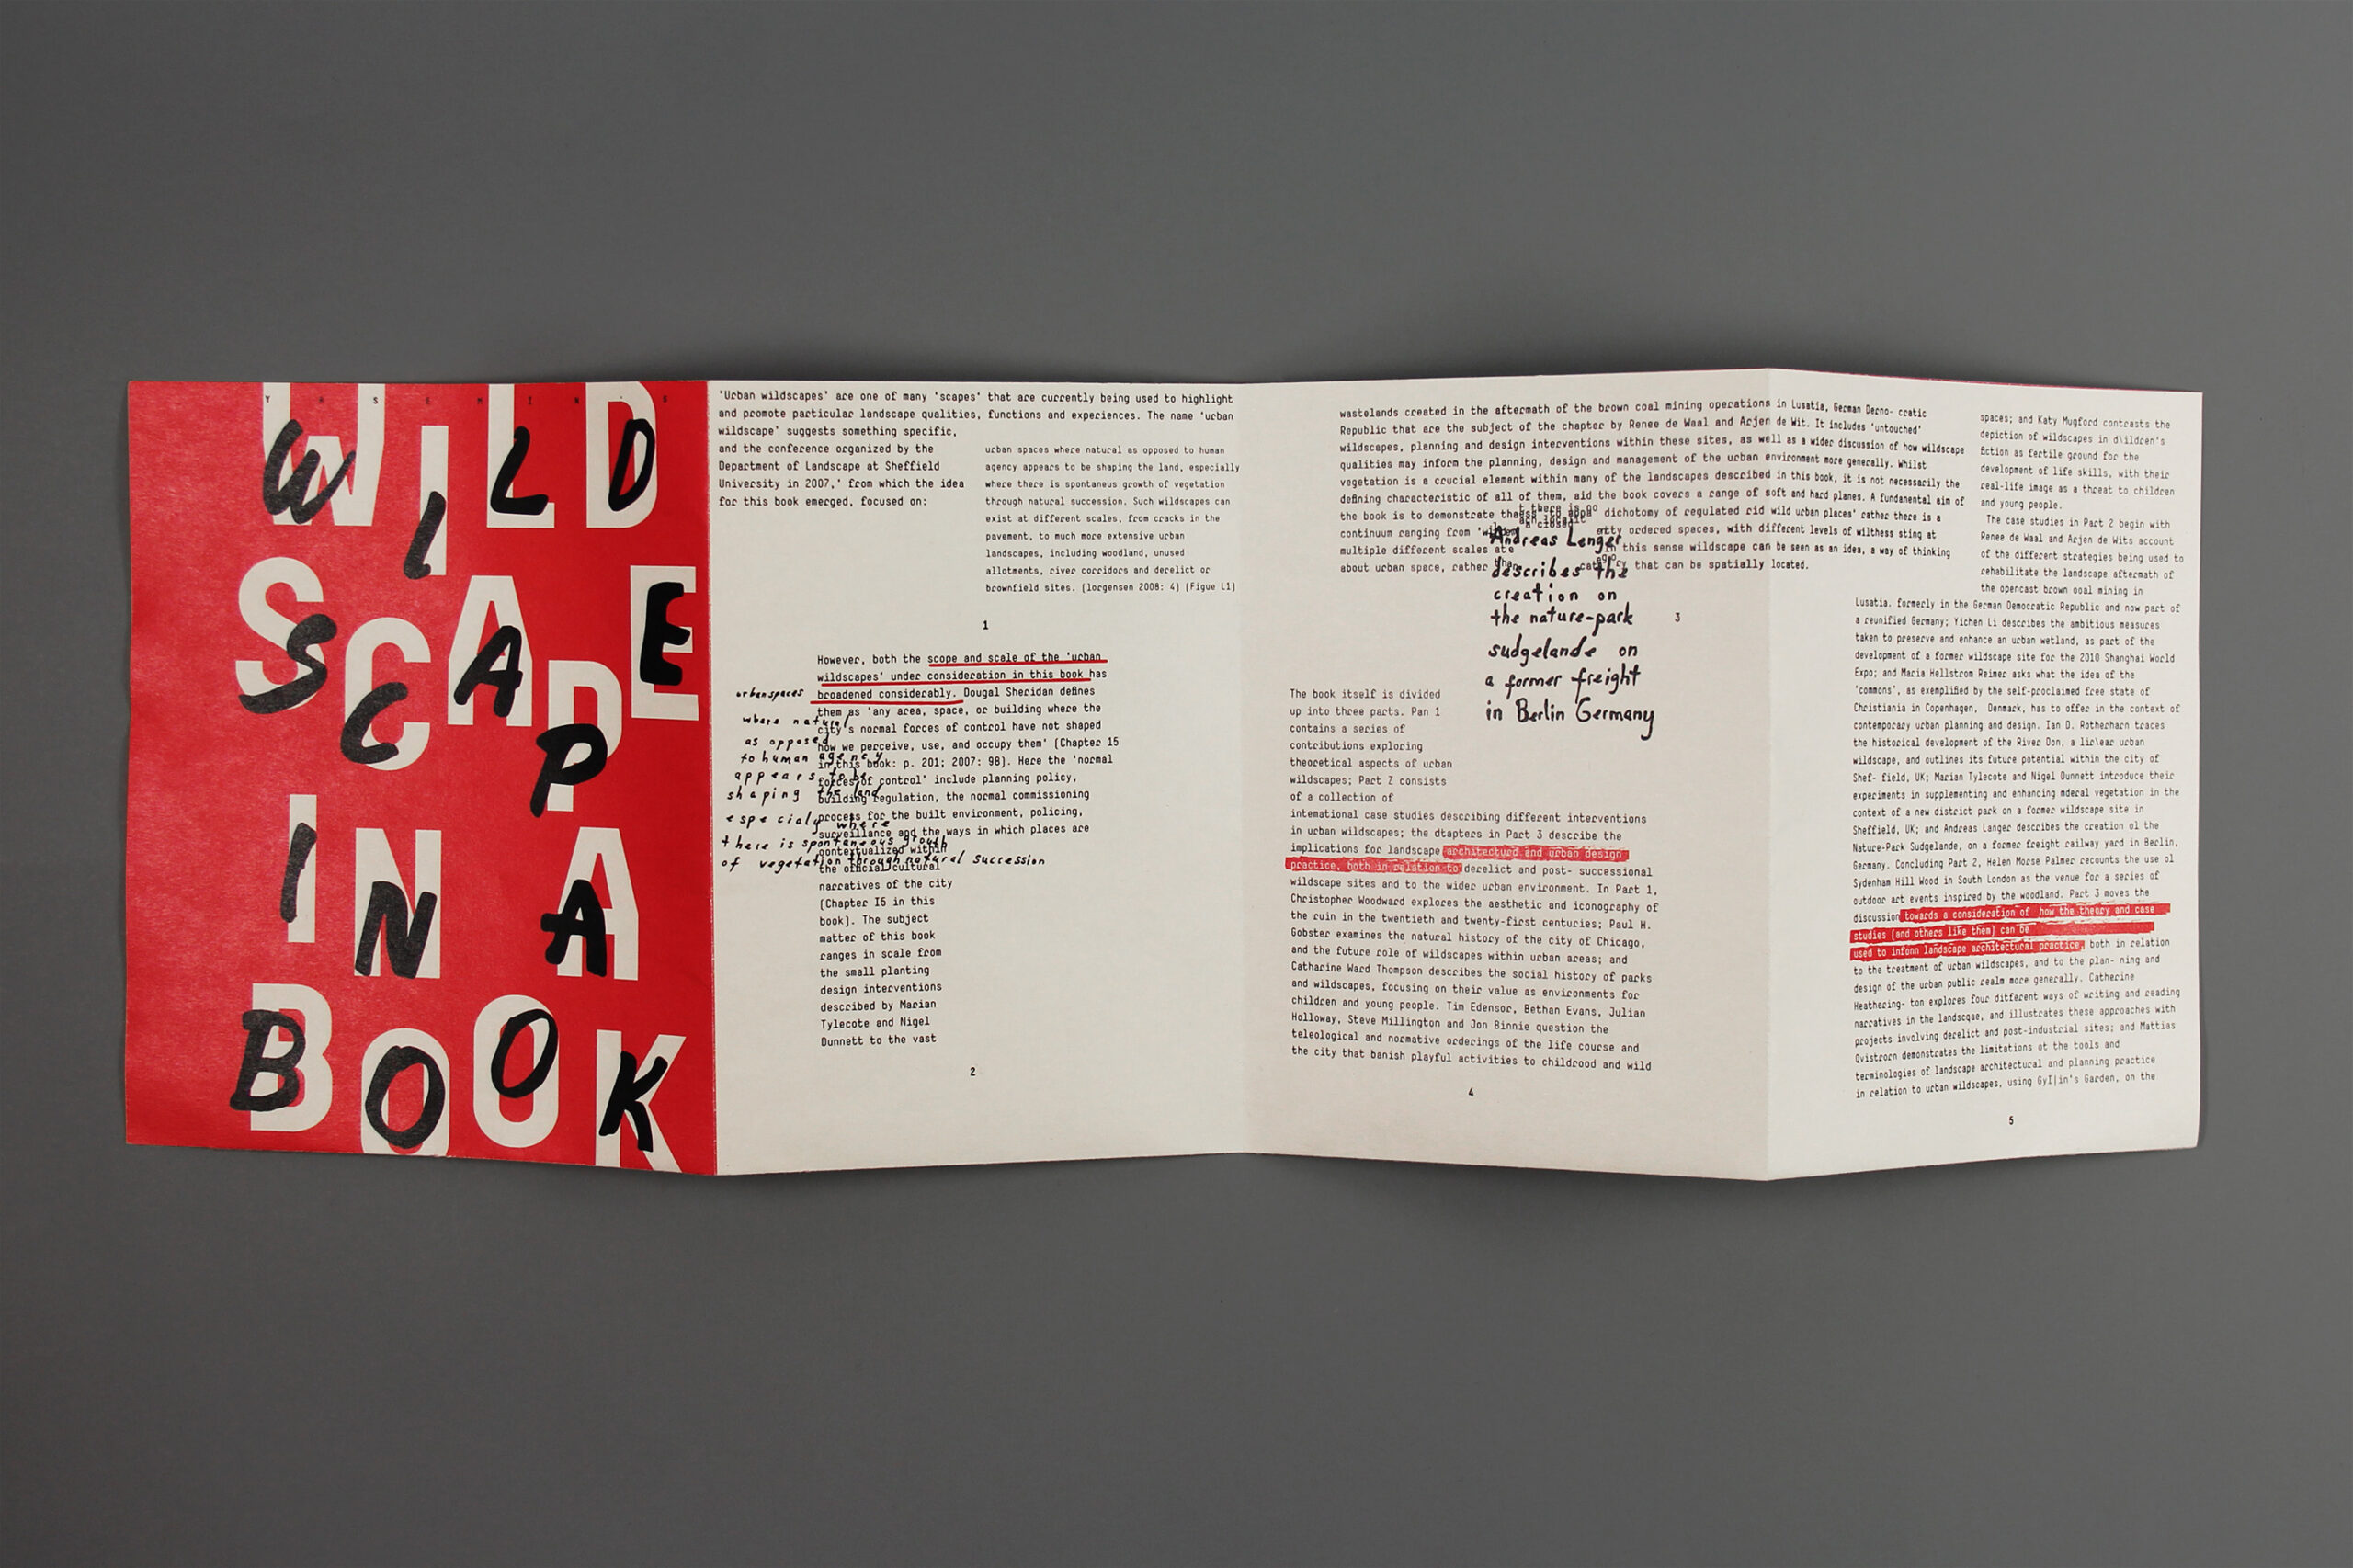 WILD
SCAPE
IN A
BOOK
WILD
SCAPE
IN A
BOOK
'Urban wildscapes' are one of many 'scapes' that are currently being used to highlight
and promote particular landscape qualities, functions and experiences. The name 'urban
wildscape' suggests something specific,
and the conference organized by the
Department of Landscape at Sheffield
University in 2007,' from which the idea
for this book emerged, focused on:
urban spaces where natural as opposed to human
agency appears to be shaping the land, especially
where there is spontaneus growth of vegetation
through natural succession. Such wildscapes can
exist at different scales, from cracks in the
pavement, to much more extensive urban
landscapes, including woodland, unused
allotments, river corridors and derelict or
brownfield sites. (lorgensen 2008: 4) (Figue L1)
1
However, both the scope and scale of the 'urban
wildscapes' under consideration in this book has
broadened considerably. Dougal Sheridan defines
them as 'any area, space, or building where the
city's normal forces of control have not shaped
how we perceive, use, and occupy them' (Chapter 15
in this book: p. 201; 2007: 98). Here the 'normal
forces of control' include planning policy,
building regulation, the normal commissioning
process for the built environment, policing,
surveillance and the ways in which places are
contextualized within
the official cultural
narratives of the city
(Chapter I5 in this
book). The subject
matter of this book
ranges in scale from
the small planting
design interventions
described by Marian
Tylecote and Nigel
Dunnett to the vast
2
urban spaces
where natural
as opposed
to human agency
appears to be
shaping the land
especialy where
there is spontaneous grouth
of vegetation through natural succession
wastelands created in the aftermath of the brown coal mining operations in Lusatia, German Derno- cratic
Republic that are the subject of the chapter by Renee de Waal and Arjen de Wit. It includes 'untouched'
wildscapes, planning and design interventions within these sites, as well as a wider discussion of how wildscape
qualities may inform the planning, design and management of the urban environment more generally. Whilst
vegetation is a crucial element within many of the landscapes described in this book, it is not necessarily the
defining characteristic of all of them, aid the book covers a range of soft and hard planes. A fundamental aim of
the book is to demonstrate dichotomy of regulated rid wild urban places' rather there is a
continuum ranging from ordered spaces, with different levels of wilthess sting at
multiple different scales this sense wildscape can be seen as an idea, a way of thinking
about urban space, rather that can be spatially located.
3
Andreas Lenger
describes the
creation on
the nature-park
sudgelande on
a former freight
in Berlin Germany
The book itself is divided
up into three parts. Pan 1
contains a series of
contributions exploring
theoretical aspects of urban
wildscapes; Part Z consists
of a collection of
intemational case studies describing different interventions
in urban wildscapes; the dtapters in Part 3 describe the
implications for landscape architecturd and urban design
practice, both in relation to derelict and post- successional
wildscape sites and to the wider urban environment. In Part 1,
Christopher Woodward explores the aesthetic and iconography of
the ruin in the twentieth and twenty-first centuries; Paul H.
Gobster examines the natural history of the city of Chicago,
and the future role of wildscapes within urban areas; and
Catharine Ward Thompson describes the social history of parks
and wildscapes, focusing on their value as environments for
children and young people. Tim Edensor, Bethan Evans, Julian
Holloway, Steve Millington and Jon Binnie question the
teleological and normative orderings of the life course and
the city that banish playful activities to childrood and wild
4
spaces; and Katy Mugford contrasts the
depiction of wildscapes in d\ildren's
fiction as fertile ground for the
development of life skills, with their
real-life image as a threat to children
and young people.
The case studies in Part 2 begin with
Renee de Waal and Arjen de Wits account
of the different strategies being used to
rehabilitate the landscape aftermath of
the opencast brown ooal mining in
Lusatia. formerly in the German Democratic Republic and now part of
a reunified Germany; Yichen Li describes the ambitious measures
taken to preserve and enhance an urban wetland, as part of the
development of a former wildscape site for the 2010 Shanghai World
Expo; and Maria Hellstrom Reimer asks what the idea of the
'commons', as exemplified by the self-proclaimed free state of
Christiania in Copenhagen, Denmark, has to offer in the context of
contemporary urban planning and design. Ian D. Rotherharn traces
the historical development of the River Don, a lir\ear urban
wildscape, and outlines its future potential within the city of
Shef- field, UK; Marian Tylecote and Nigel Dunnett introduce their
experiments in supplementing and enhancing mderal vegetation in the
context of a new district park on a former wildscape site in
Sheffield, UK; and Andreas Langer describes the creation ol the
Nature-Park Sudgelande, on a former freight railway yard in Berlin,
Germany. Concluding Part 2, Helen Morse Palmer recounts the use ol
Sydenham Hill Wood in South London as the venue for a series of
outdoor art events inspired by the woodland. Part 3 moves the
discussion towards a consideration of how the theory and case
studies (and others like them) can be
used to infonn landscape architectural practice, both in relation
to the treatment of urban wildscapes, and to the plan- ning and
design of the urban public realm more generally. Catherine
Heathering- ton explores four different ways of writing and reading
narratives in the landscqae, and illustrates these approaches with
projects involving derelict and post-industrial sites; and Mattias
Qvistrorn demonstrates the limitations ot the tools and
terminologies of landscape architectural and planning practice
in relation to urban wildscapes, using GyI|in's Garden, on the
5